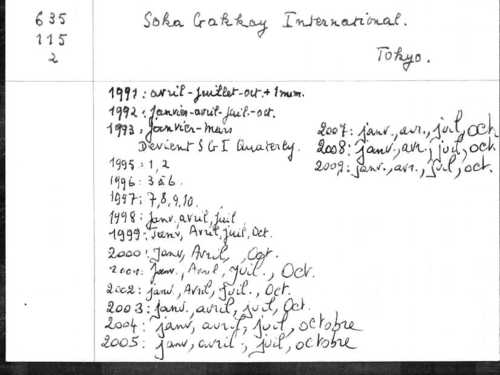 635
115
2
Soka Gakkay International.
Tokyo.
1991: avril-juillet-oct.+1 num.
1992: janvier-avril-juil-oct.
1993: janvier-mars
Devient SGI Quaterly.
1995: 1, 2
1996: 3 à 6.
1997: 7, 8, 9, 10.
1998: janv, avril, juil
1999: Janv, Avril, juil, Oct.
2000: Janv, Avril, Oct.
2001: Janv., Avril, Juil., Oct.
2002: janv, Avril, Juil., Oct.
2003: janv., avril, juil, Oct.
2004: janv, avril, juil, octobre
2005: janv, avril, juil, octobre
2007: janv., avr., juil, oct.
2008: janv., avr., juil, oct.
2009: janv., avr., juil, oct.